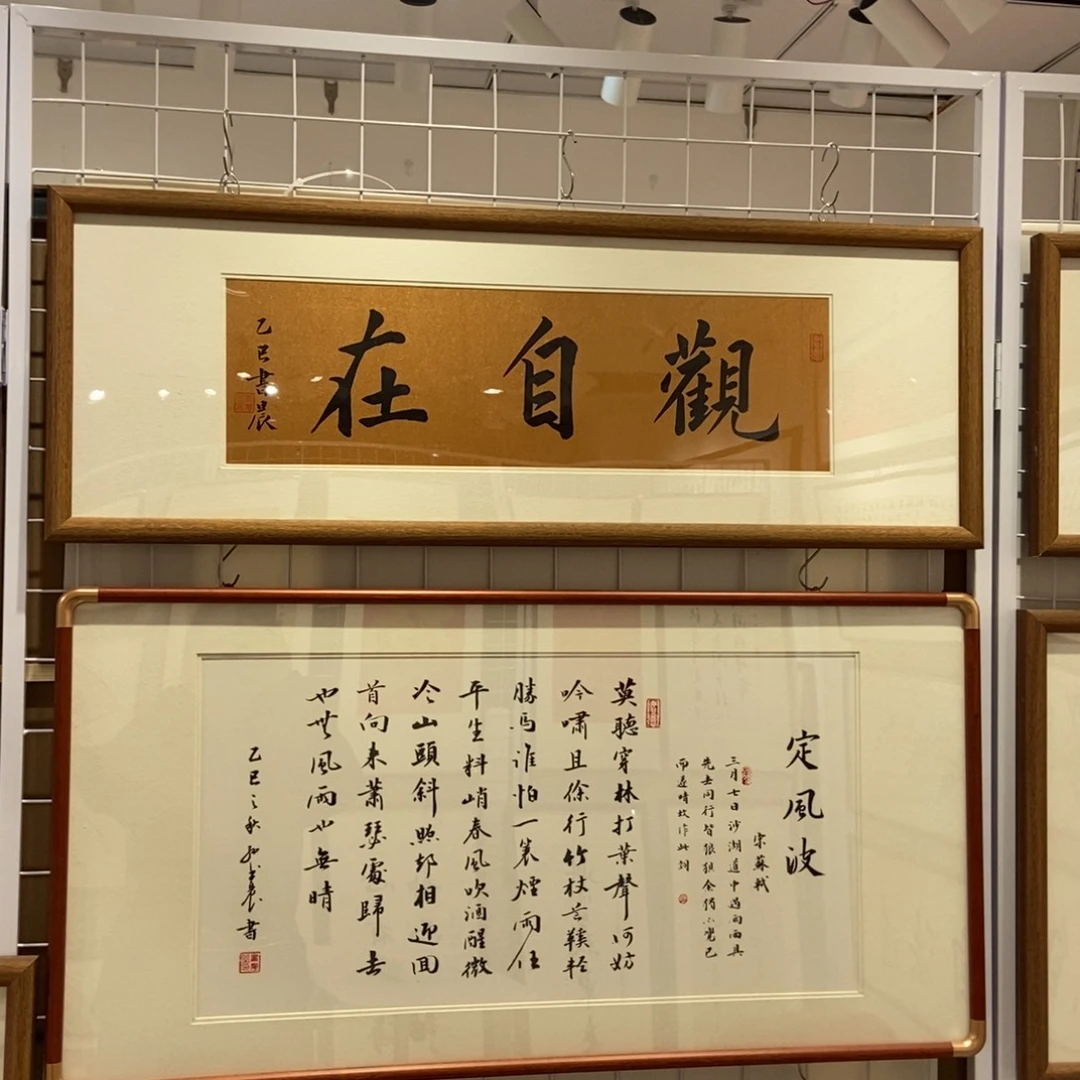 觀自在
乙巳書晨
定風波
宋蘇軾
三月七日沙湖道中遇雨雨具
先去同行皆狼狽余獨不覺已
而遂晴故作此詞
莫聽穿林打葉聲何妨
吟嘯且徐行竹杖芒鞵輕
勝馬誰怕一蓑煙雨任
平生料峭春風吹酒醒微
冷山頭斜照却相迎回
首向來蕭瑟處歸去
也無風雨也無晴
乙巳之秋書